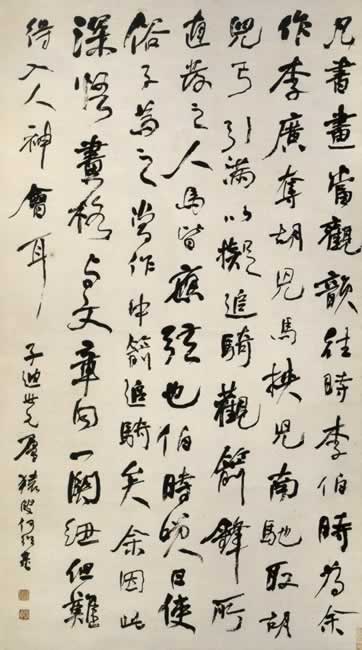 凡書畫當觀韻往時李伯時為余
作李廣奪胡兒馬挾兒南馳取胡
兒弓引滿以擬追騎觀箭鋒所
直發之人馬皆應弦也伯時笑曰使
俗子為之當作中箭追騎矣余因此
深悟畫格与文章同一關紐但難
得入人神會耳
子迪世兄屬 猨叟何紹基